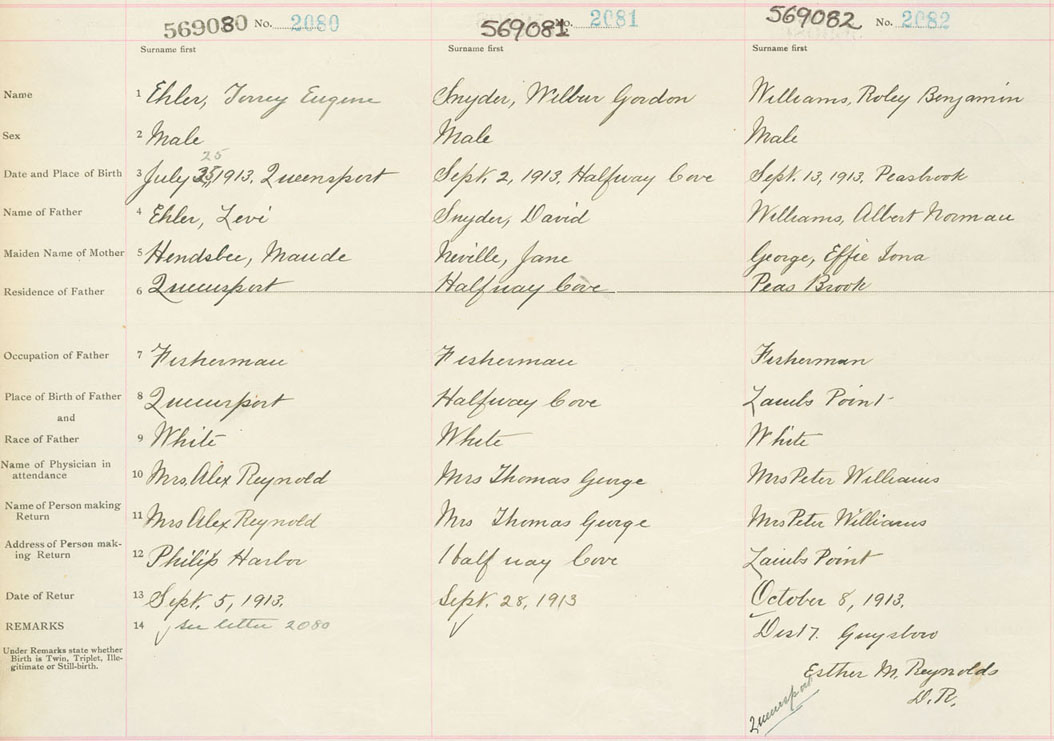 569080 No. 2080 569081 No. 2081 569082 No. 2082
Surname first Surname first Surname first
Name 1 Ehler, Torrey Eugene Snyder, Wilbur Gordon Williams, Roley Benjamin
Sex 2 Male Male Male
25
Date and Place of Birth 3 July 25, 1913. Queensport Sept. 2, 1913. Halfway Cove Sept. 13, 1913. Peasbrook
Name of Father 4 Ehler, Levi Snyder, David Williams, Albert Norman
Maiden Name of Mother 5 Hendsbee, Maude Neville, Jane George, Effie Iona
Residence of Father 6 Queensport Halfway Cove Peas Brook
Occupation of Father 7 Fisherman Fisherman Fisherman
Place of Birth of Father 8 Queensport Halfway Cove Lambs Point
and
Race of Father 9 White White White
Name of Physician in
attendance 10 Mrs. Alex Reynold Mrs Thomas George Mrs Peter Williams
Name of Person making
Return 11 Mrs Alex Reynold Mrs Thomas George Mrs Peter Williams
Address of Person mak-
ing Return 12 Philip Harbor Half way Cove Lambs Point
Date of Retur 13 Sept. 5, 1913. Sept. 28, 1913 October 8, 1913.
REMARKS 14 see letter 2080 Dist 7. Guysboro
Under Remarks state whether
Birth is Twin, Triplet, Ille-
gitimate or Still-birth.
Esther M. Reynolds
D.R.
Queensport